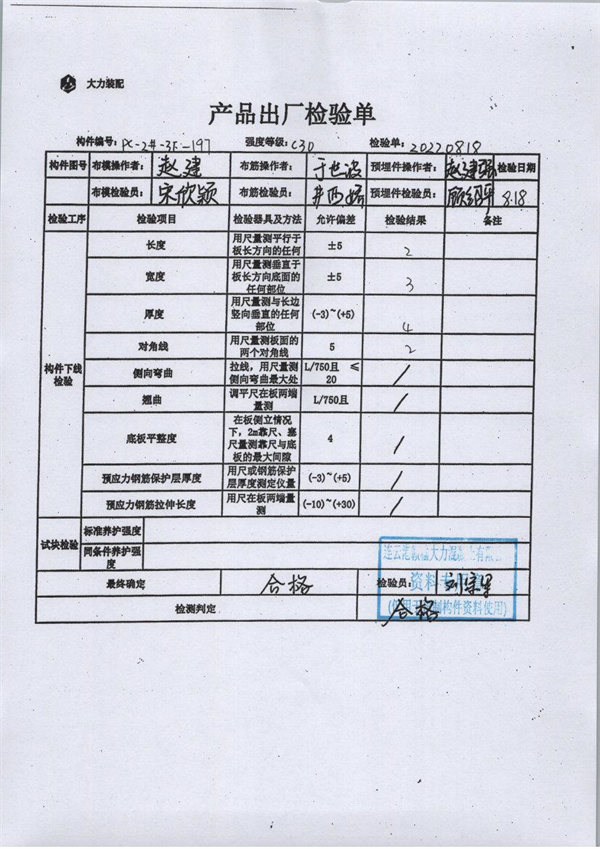 大力装配
产品出厂检验单
构件编号：PC-2#-3F-197 强度等级：C30 检验单：20220818
构件图号 布模操作者：赵建 布筋操作者：于世波 预埋件操作者：赵建 检验日期
布模检验员：宋欣颖 布筋检验员： 预埋件检验员： 8.18
检验工序 检验项目 检验器具及方法 允许偏差 检验结果 备注
构件下线检验
长度 用尺量测平行于板长方向的任何 ±5 2
宽度 用尺量测垂直于板长方向底面的任何部位 ±5 3
厚度 用尺量测与长边竖向垂直的任何部位 (-3)~(+5) 4
对角线 用尺量测板面的两个对角线 5 2
侧向弯曲 拉线，用尺量测侧向弯曲最大处 L/750且 ≤20 /
翘曲 调平尺在板两端量测 L/750且 /
底板平整度 在板侧立情况下，2m靠尺、塞尺量测靠尺与底板的最大间隙 4 /
预应力钢筋保护层厚度 用尺或钢筋保护层厚度测定仪量 (-3)~(+5) /
预应力钢筋拉伸长度 用尺在板两端量测 (-10)~(+30) /
试块检验
标准养护强度
同条件养护强度
最终确定 合格 检验员：
检测判定 合格